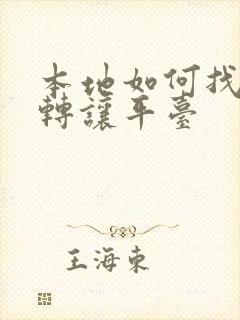 本地如何找
轉讓平臺
王海東